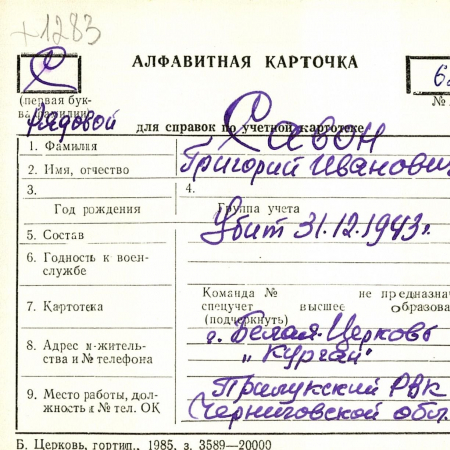 +1283
С
АЛФАВИТНАЯ КАРТОЧКА
(первая бук-
ва фамилии)
№
Рядовой
для справок по учетной картотеке
1. Фамилия Савон
2. Имя, отчество Григорий Иванович
3. 4.
Год рождения Группа учета
5. Состав Убит 31.12.1943г.
6. Годность к воен-
службе
Команда № не предназна
7. Картотека спецучет высшее образова
(подчеркнуть)
г. Белая-Церковь
8. Адрес м-житель-
ства и № телефона
„Курган"
9. Место работы, дол-
жность и № тел. ОК
Прилукский РВК
Черниговской обл.
Б. Церковь, гортип., 1985, з. 3589—20000